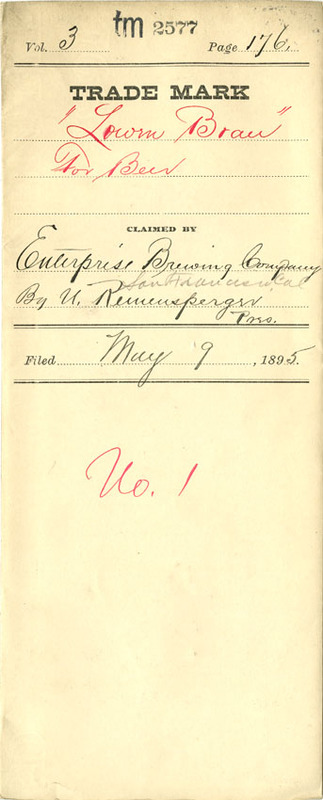 tm 2577
Vol. 3 Page 176.
TRADE MARK
"Lowen Brau"
For Beer
CLAIMED BY
Enterprise Brewing Company
San Francisco Cal
By U. Remensperger
Pres.
Filed May 9, 1895.
No. 1